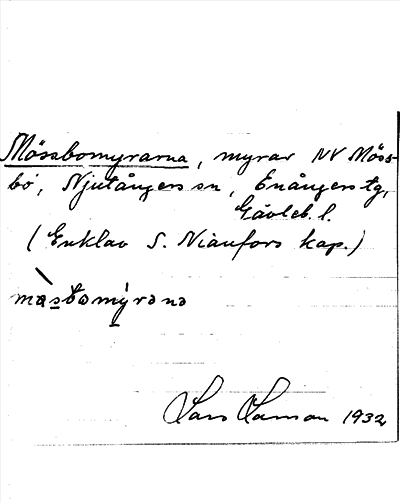 Mössbomyrarna, myrar NV Möss-
bo, Njutångers sn, Enångers tg,
Gävleb. l.
(Enklav S. Nianfors kap.)
mäsbomýrəna
Lars Larson 1932